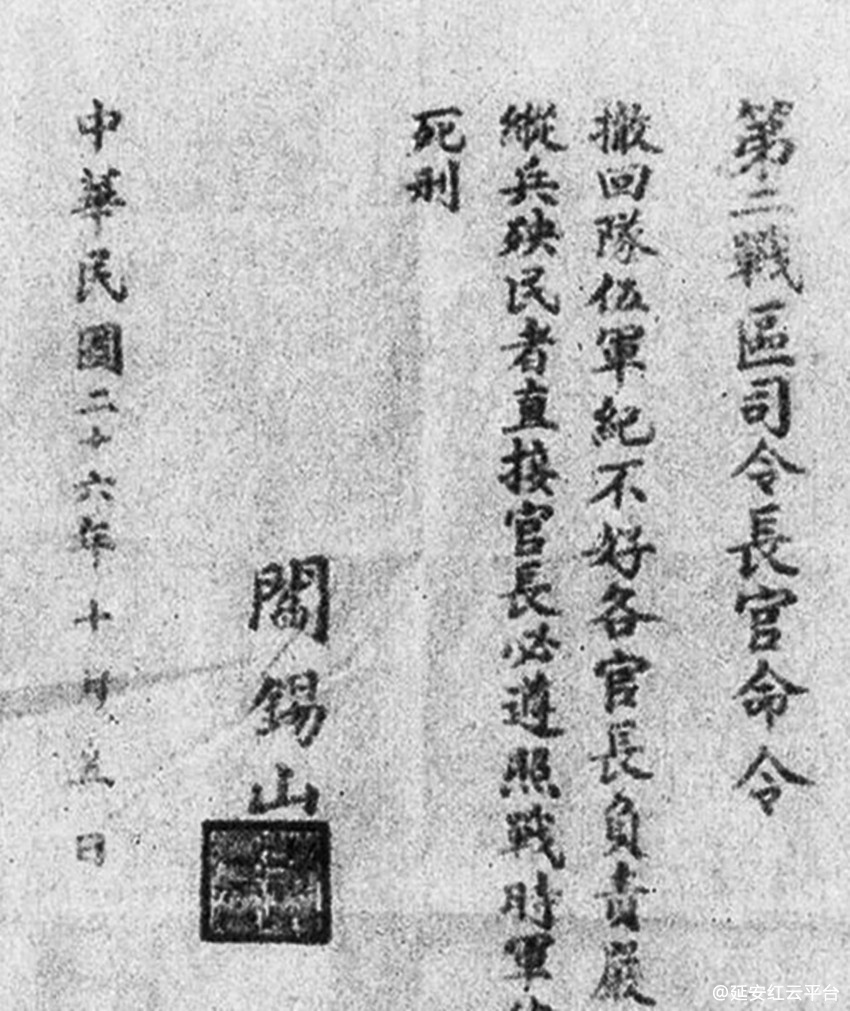 第二戰區司令長官命令
撤回隊伍軍紀不好各官長負責嚴
縱兵殃民者直接官長必遵照戰時軍
死刑
閻錫山
中華民國二十六年十月五日
@延安红云平台